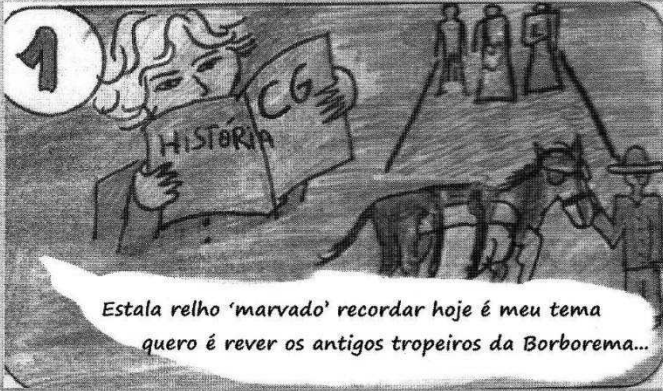 1
HISTÓRIA
CG
Estala relho ‘marvado’ recordar hoje é meu tema
quero é rever os antigos tropeiros da Borborema...